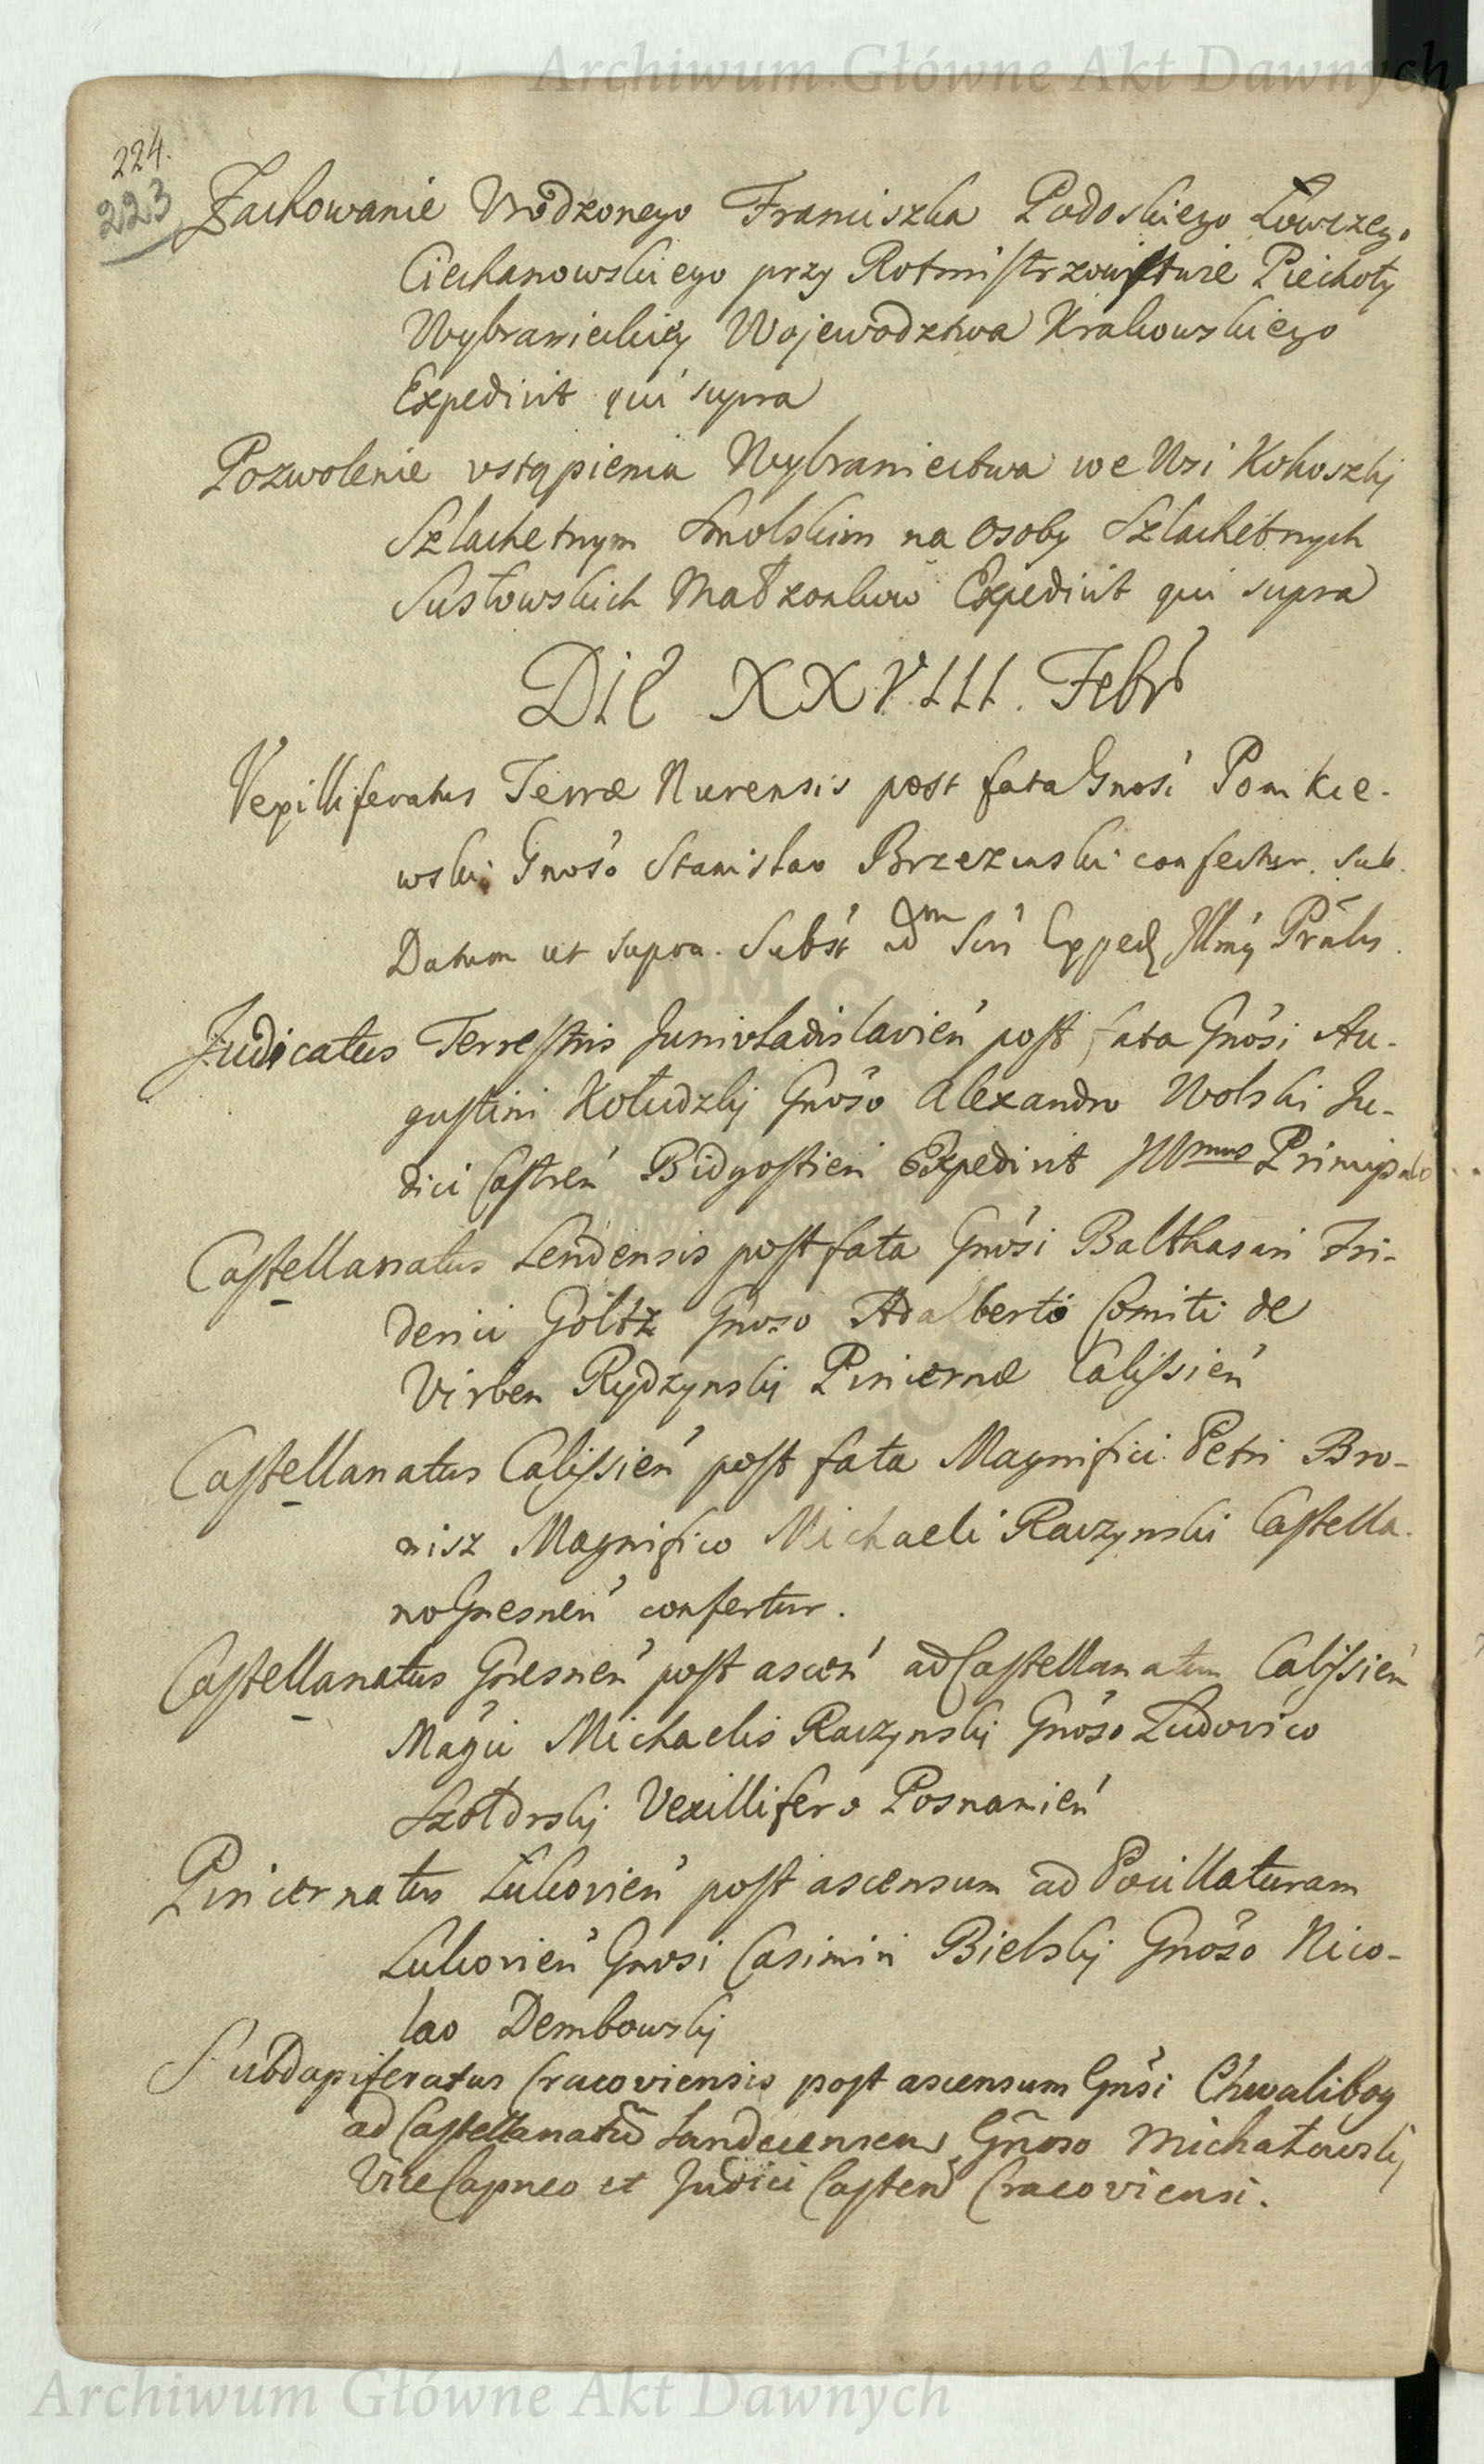 Archiwum Główne Akt Dawnych
224.
223
Zachowanie Vrodzonego Franciszka Podoskiego Łowczego
Ciechanowskiego przy Rotmistrzowstwie Piechoty
Wybranieckiey Wojewodztwa Krakowskiego
Expedivit qui supra
Pozwolenie vstąpienia Wybraniectwa we Wsi Kokoszkj
Szlachetnym Smolskim na osoby Szlachetnych
Susłowskich Małzonkow Expedivit qui supra
Die XXVIII. Febr
Vexilliferatus Terræ Nurensis post fata Gnosi Pomkie-
wski Gnoso Stanislao Brzezinski confertur. Sub.
Datum ut supra. Subst ad m Sui Expedt Illmy Prælis.
Judicatus Terrestris Junivladislavien post fata Gnosi Au-
gustini Kołudzkj Gnoso Alexandro Wolski Ju-
dici Castren Bidgostien Expedivit Illmus Principalis
Castellanatus Lendensis post fata Gnosi Balthasari Fri-
derici Goltz Gnoso Adalberto Comiti de
Virben Rydzynskj Pincernæ Calissien
Castellanatus Calissien post fata Magnifici Petri Bro-
nisz Magnifico Michaeli Raczynski Castella-
no Gnesnen confertur.
Castellanatus Gnesnen post ascen ad Castellanatum Calissien
Magci Michaelis Raczynskj Gnoso Ludovico
Szołdrskj Vexillifero Posnanien
Pincernatus Lukovien post ascensum ad Pocillaturam
Lukovien Gnosi Casimiri Bielskj Gnoso Nico-
lao Dembowskj
Subdapiferatus Cracoviensis post ascensum Gnsi Chwalibog
ad Castellanatu Sandecensem Gnoso Michałowskj
Vice Capneo et Judici Castren Cracoviensi.
Archiwum Główne Akt Dawnych